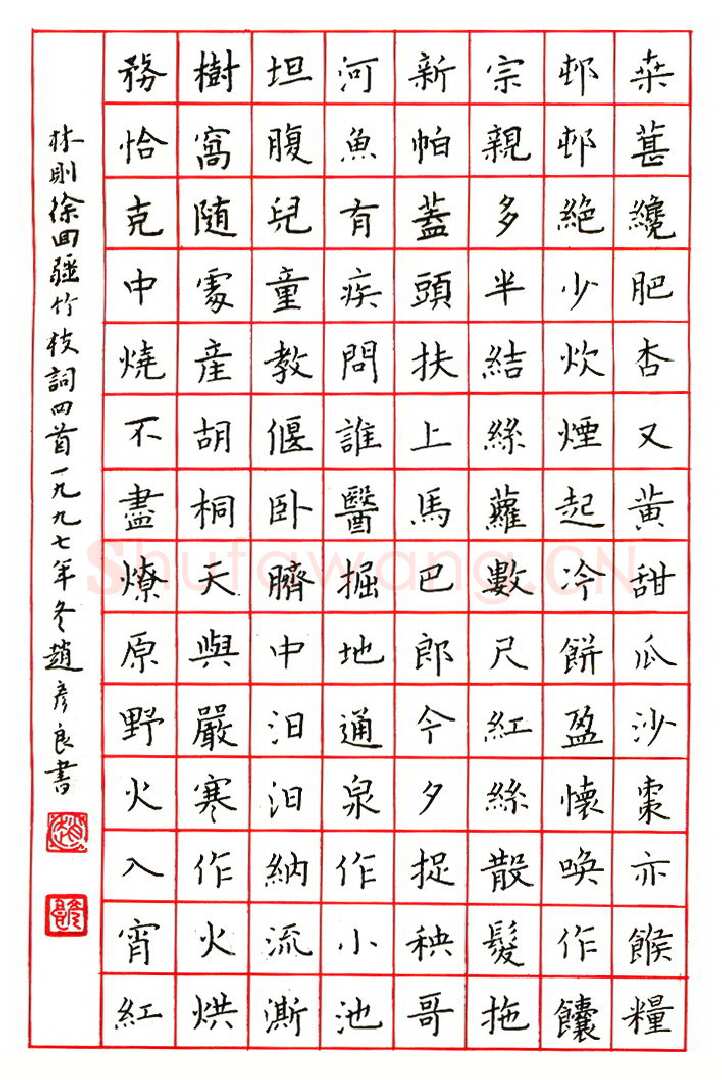 桒葚纔肥杏又黄甜瓜沙棗亦餱糧
邨邨絶少炊煙起冷餅盈懷唤作饢
宗親多半結絲蘿數尺紅絲散髮拖
新帕蓋頭扶上馬巴郎今夕捉秧哥
河魚有疾問誰醫掘地通泉作小池
坦腹兒童教偃卧臍中汩汩納流澌
樹窩随處産胡桐天與嚴寒作火烘
務恰克中燒不盡燎原野火入宵紅
林則徐回疆竹枝詞四首一九九七年冬趙彦良書
Shufawang.CN